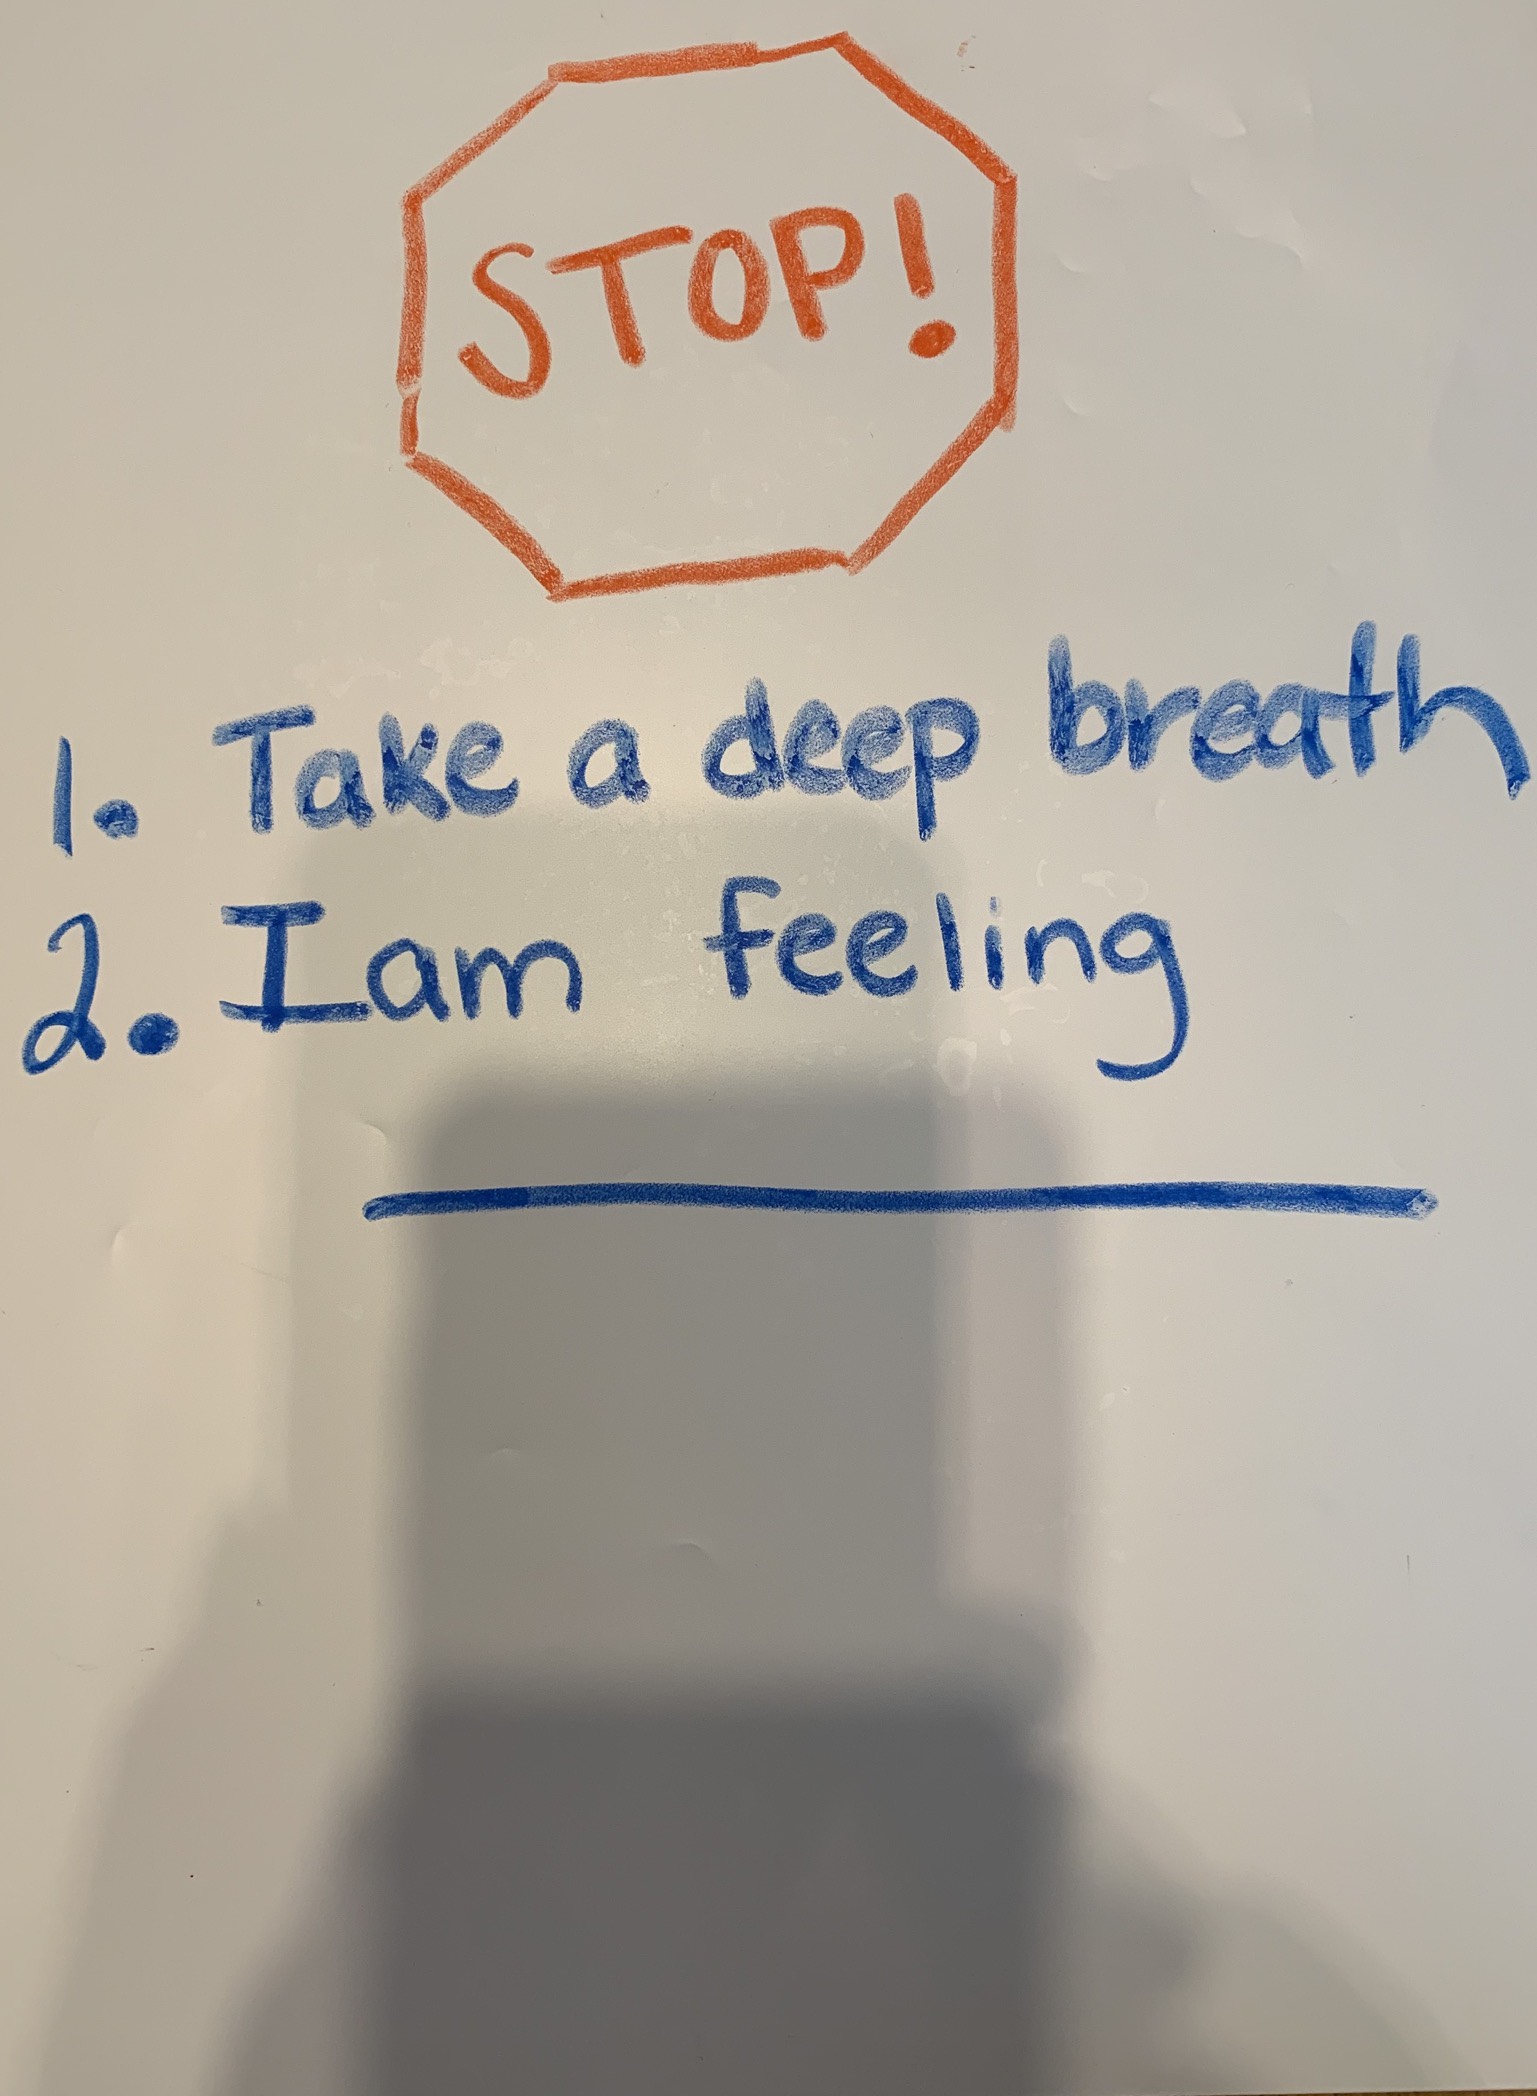 STOP!
1. Take a deep breath
2. I am feeling